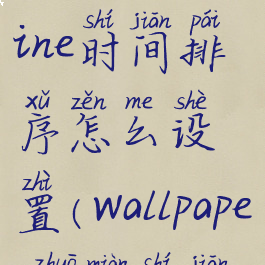 shí jiān pái
ine时间排
xù zěn me shè
序怎么设
zhì
置(wallpape
zhuō miàn shí jiān